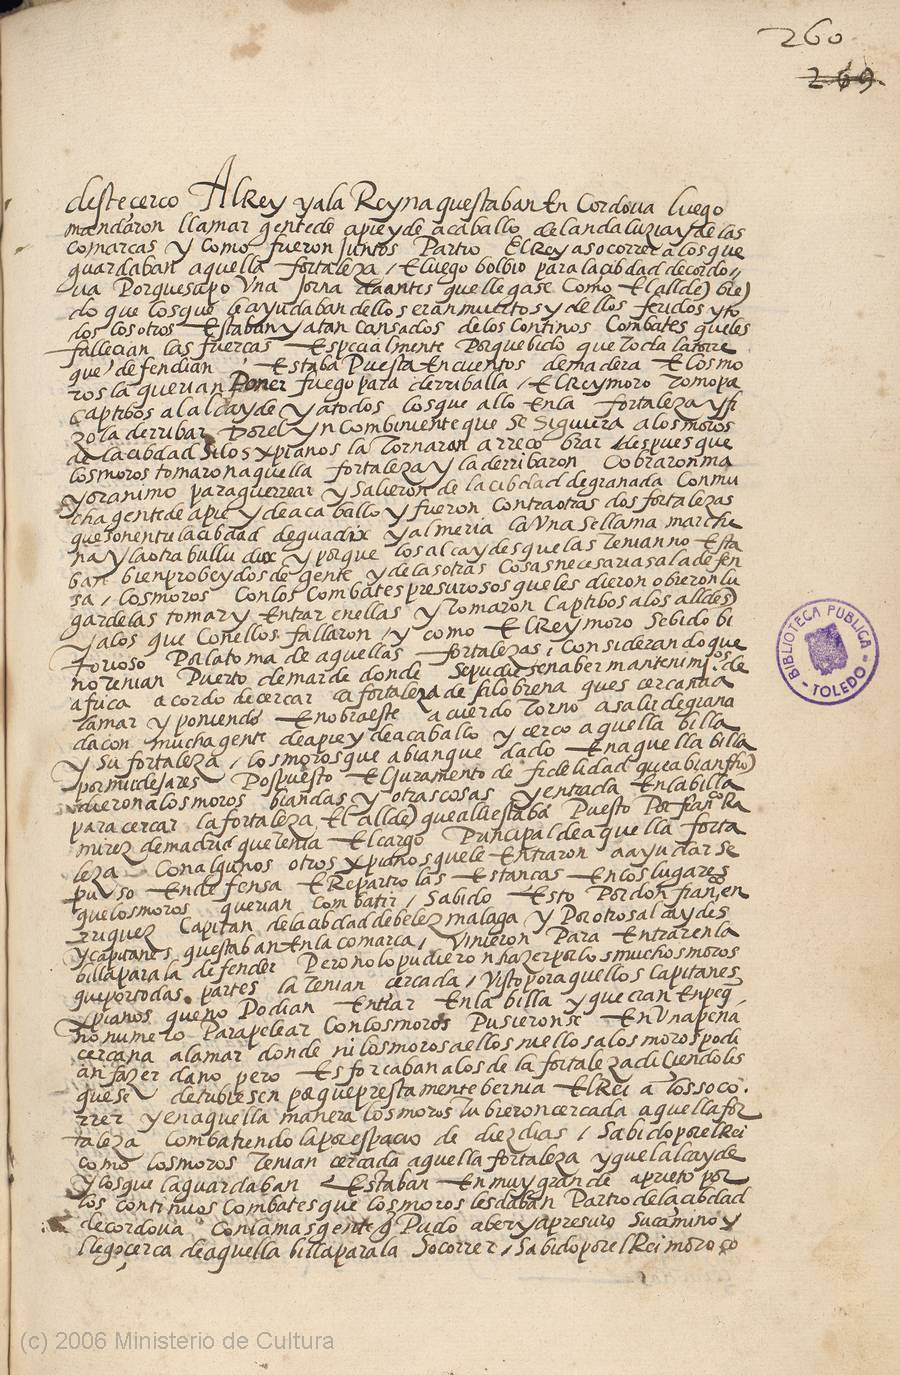 260
269
deste cerco Al Rey y ala Reyna questaban En Cordova luego
mandaron llamar gente de apie y de acaballo de landaluzia y de las
comarcas y como fueron juntos Partio El Rey a socorrer a los que
guardaban aquella fortaleza / E luego bolbio para la cibdad de cordo
va Porque sapo Una jorna da antes que llegase Como El allde bie
do que los que le ayudaban dellos eran muertos y dellos feridos y to
dos los otros Estaban ya tan cansados de los continos Combates que les
fallecian las fuercas Especialmente Porque bido que toda la torre
que defendian Estaba Puesta En cuentos de madera E los mo
ros la querian Poner fuego para derriballa / El Rey moro tomo pa
captibos al alcayde y a todos los que allo En la fortaleza y fi
zo la derribar Por el ynconbiniente que se siguiera a los moros
de la cibdad si los xpianos la tornaran a rrecobrar despues que
los moros tomaron aquella fortaleza y la derribaron Cobraron ma
yor animo para guerrear y salieron de la cibdad de granada Con mu
cha gente de apie y de acaballo y fueron Contra otras dos fortalezas
que son entre la cibdad de guadix y almeria la Una se llama marche
na y la otra bullu dix y porque los alcaydes que las tenian no Esta
ban bien probeydos de gente y de las otras Cosas necesarias a la defen
sa / los moros Con los Combates presurosos que les dieron obieron lu
gar de las tomar y Entrar en ellas y tomaron Captibos a los alldes
y a los que Con ellos fallaron / y como El Rey moro se bido bi
torioso Por la toma de aquellas fortalezas / Considerando que
no tenian Puerto de mar de donde se pudiesen aber mantenimios de
africa acordo de cercar la fortaleza de salobrena ques cercana a
la mar y poniendo En obra este acuerdo torno a salir de grana
da con mucha gente de apie y de acaballo y cerco aquella billa
y su fortaleza / los moros que abian que dado En aquella billa
por mudejares Pospuesto El juramento de fidelidad que abian fho
dieron a los moros biandas y otras cosas y entrada En la billa
para cercar la fortaleza El allde que alli estaba Puesto Por franco Ra
mirez de madrid que tenia El cargo Principal de aquella forta
leza Con algunos otros xpianos que le Entraron a ayudar se
puso En defensa E Repartio las Estancas En los lugares
que los moros querian combatir / Sabido Esto Por don franco en
rriquez Capitan de la cibdad de belez malaga y Por otros alcaydes
y capitanes questaban En la comarca / Vinieron Para Entrar en la
billa para la defender Pero no lo pudieron hazer por los muchos moros
que por todas partes la tenian cercada / Visto por aquellos capitanes
xpianos que no Podian Entrar En la billa y que eran En peq
no numero Para pelear Con los moros Pusieronse En Una peña
cercana a la mar donde ni los moros a ellos ni ellos a los moros podi
an fazer dano pero Esforcaban a los de la fortaleza diciendoles
que se detubiesen porque prestamente bernia El Rei a los soco
rrer y en aquella manera los moros tubieron cercada aquella for
taleza Combatiendola por espacio de diez dias / Sabido por el Rei
como los moros tenian cercada aquella fortaleza y que el alcayde
y los que la guardaban Estaban En muy grande aprieto por
los continuos Combates que los moros les daban Partio de la cibdad
de cordova Con la mas gente q Pudo aber y apresuro Su camino y
llego cerca de aquella billa para la Socorrer / Sabido por el Rei moro co
BIBLIOTECA PUBLICA
- TOLEDO -
(c) 2006 Ministerio de Cultura